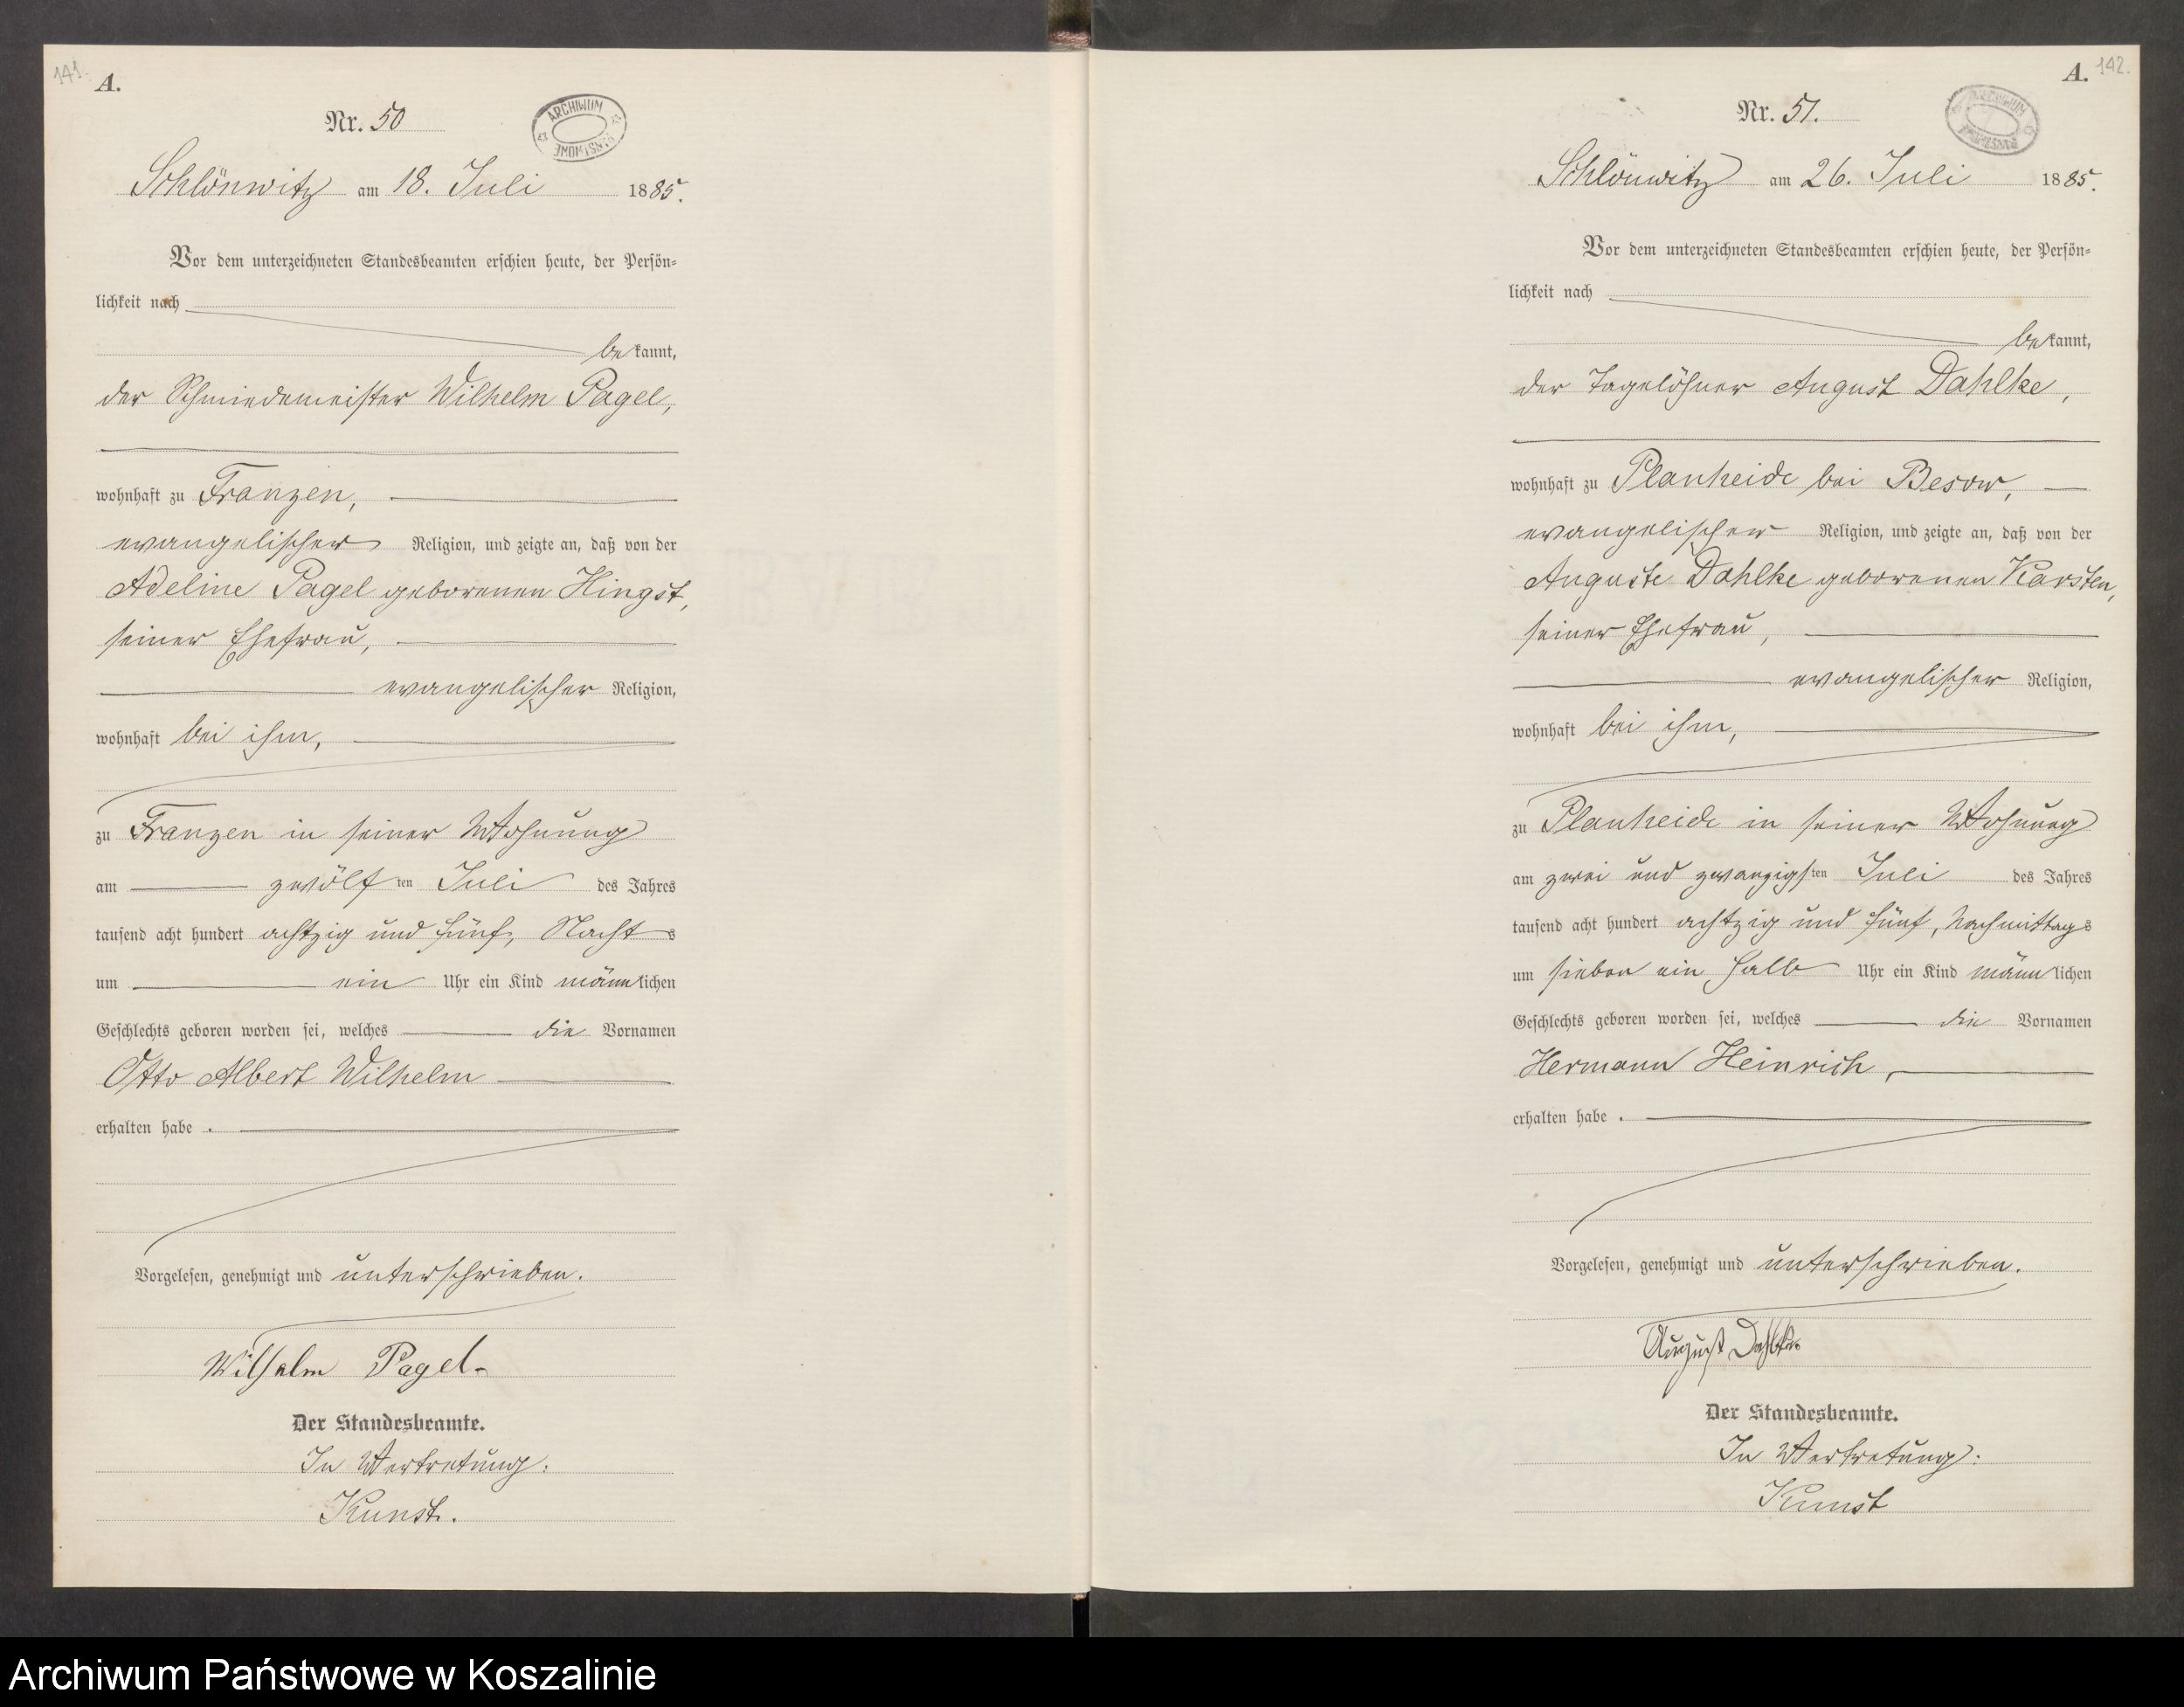 141.
A.
Nr. 50
ARCHIWUM
PAŃSTWOWE
Schlönwitz am 18. Juli 1885.
Vor dem unterzeichneten Standesbeamten erschien heute, der Persön-
lichkeit nach
bekannt,
der Schmiedemeister Wilhelm Pagel,
wohnhaft zu Franzen,
evangelischer Religion, und zeigte an, daß von der
Adeline Pagel geborenen Hingst,
seiner Ehefrau,
evangelischer Religion,
wohnhaft bei ihm,
zu Franzen in seiner Wohnung
am zwölften Juli des Jahres
tausend acht hundert achtzig und fünf, Nachts
um ein Uhr ein Kind männlichen
Geschlechts geboren worden sei, welches die Vornamen
Otto Albert Wilhelm
erhalten habe.
Vorgelesen, genehmigt und unterschrieben.
Wilhelm Pagel.
Der Standesbeamte.
In Vertretung:
Kunst.
A. 142.
Nr. 51.
ARCHIWUM
PAŃSTWOWE
Schlönwitz am 26. Juli 1885.
Vor dem unterzeichneten Standesbeamten erschien heute, der Persön-
lichkeit nach
bekannt,
der Tagelöhner August Dahlke,
wohnhaft zu Planheide bei Besow,
evangelischer Religion, und zeigte an, daß von der
Auguste Dahlke geborenen Karsten,
seiner Ehefrau,
evangelischer Religion,
wohnhaft bei ihm,
zu Planheide in seiner Wohnung
am zwei und zwanzigsten Juli des Jahres
tausend acht hundert achtzig und fünf, Nachmittags
um sieben ein halb Uhr ein Kind männlichen
Geschlechts geboren worden sei, welches die Vornamen
Hermann Heinrich,
erhalten habe.
Vorgelesen, genehmigt und unterschrieben.
August Dahlke
Der Standesbeamte.
In Vertretung:
Kunst
Archiwum Państwowe w Koszalinie